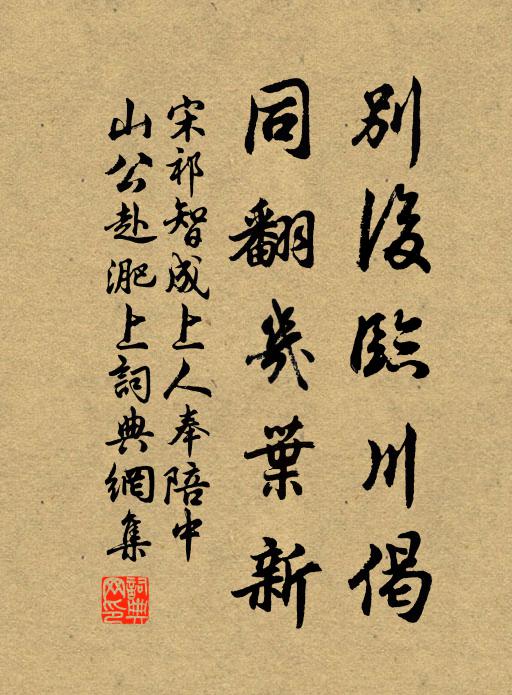 別後臨川偈
同翻幾葉新
宋祁智成上人奉陪中
山公赴淝上詞典網集
詞典网印